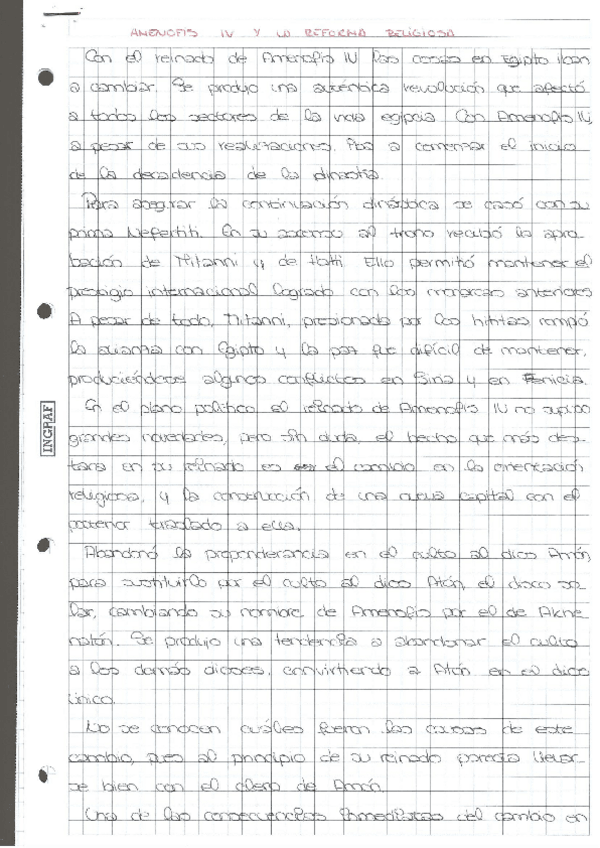 AMENOFIS IV Y LA REFORMA RELIGIOSA
Con el reinado de Amenofis IV las cosas en Egipto iban
a cambiar. Se produjo una auténtica revolución que afectó
a todos los sectores de la vida egipcia. Con Amenofis IV,
a pesar de sus realizaciones, iba a comenzar el inicio
de la decadencia de la dinastía.
Para asegurar la continuación dinástica se casó con su
prima Nefertiti. En su ascenso al trono recibió la apro-
bación de Mitanni y de Hatti. Ello permitió mantener el
prestigio internacional logrado con los monarcas anteriores
A pesar de todo, Mitanni, presionado por los hititas rompió
la alianza con Egipto y la paz fue difícil de mantener,
produciéndose algunos conflictos en Siria y en Fenicia.
En el plano político el reinado de Amenofis IV no supuso
grandes novedades, pero sin duda, el hecho que más des-
taca en su reinado es el cambio en la orientación
religiosa, y la construcción de una nueva capital con el
posterior traslado a ella.
Abandonó la preponderancia en el culto al dios Amón,
para sustituirlo por el culto al dios Atón, el disco so-
lar, cambiando su nombre de Amenofis por el de Akhe
natón. Se produjo una tendencia a abandonar el culto
a los demás dioses, convirtiendo a Atón en el dios
único.
No se conocen cuáles fueron las causas de este
cambio, pues al principio de su reinado parecía llevar-
se bien con el clero de Amón.
Una de las consecuencias inmediatas del cambio en
INGRAF